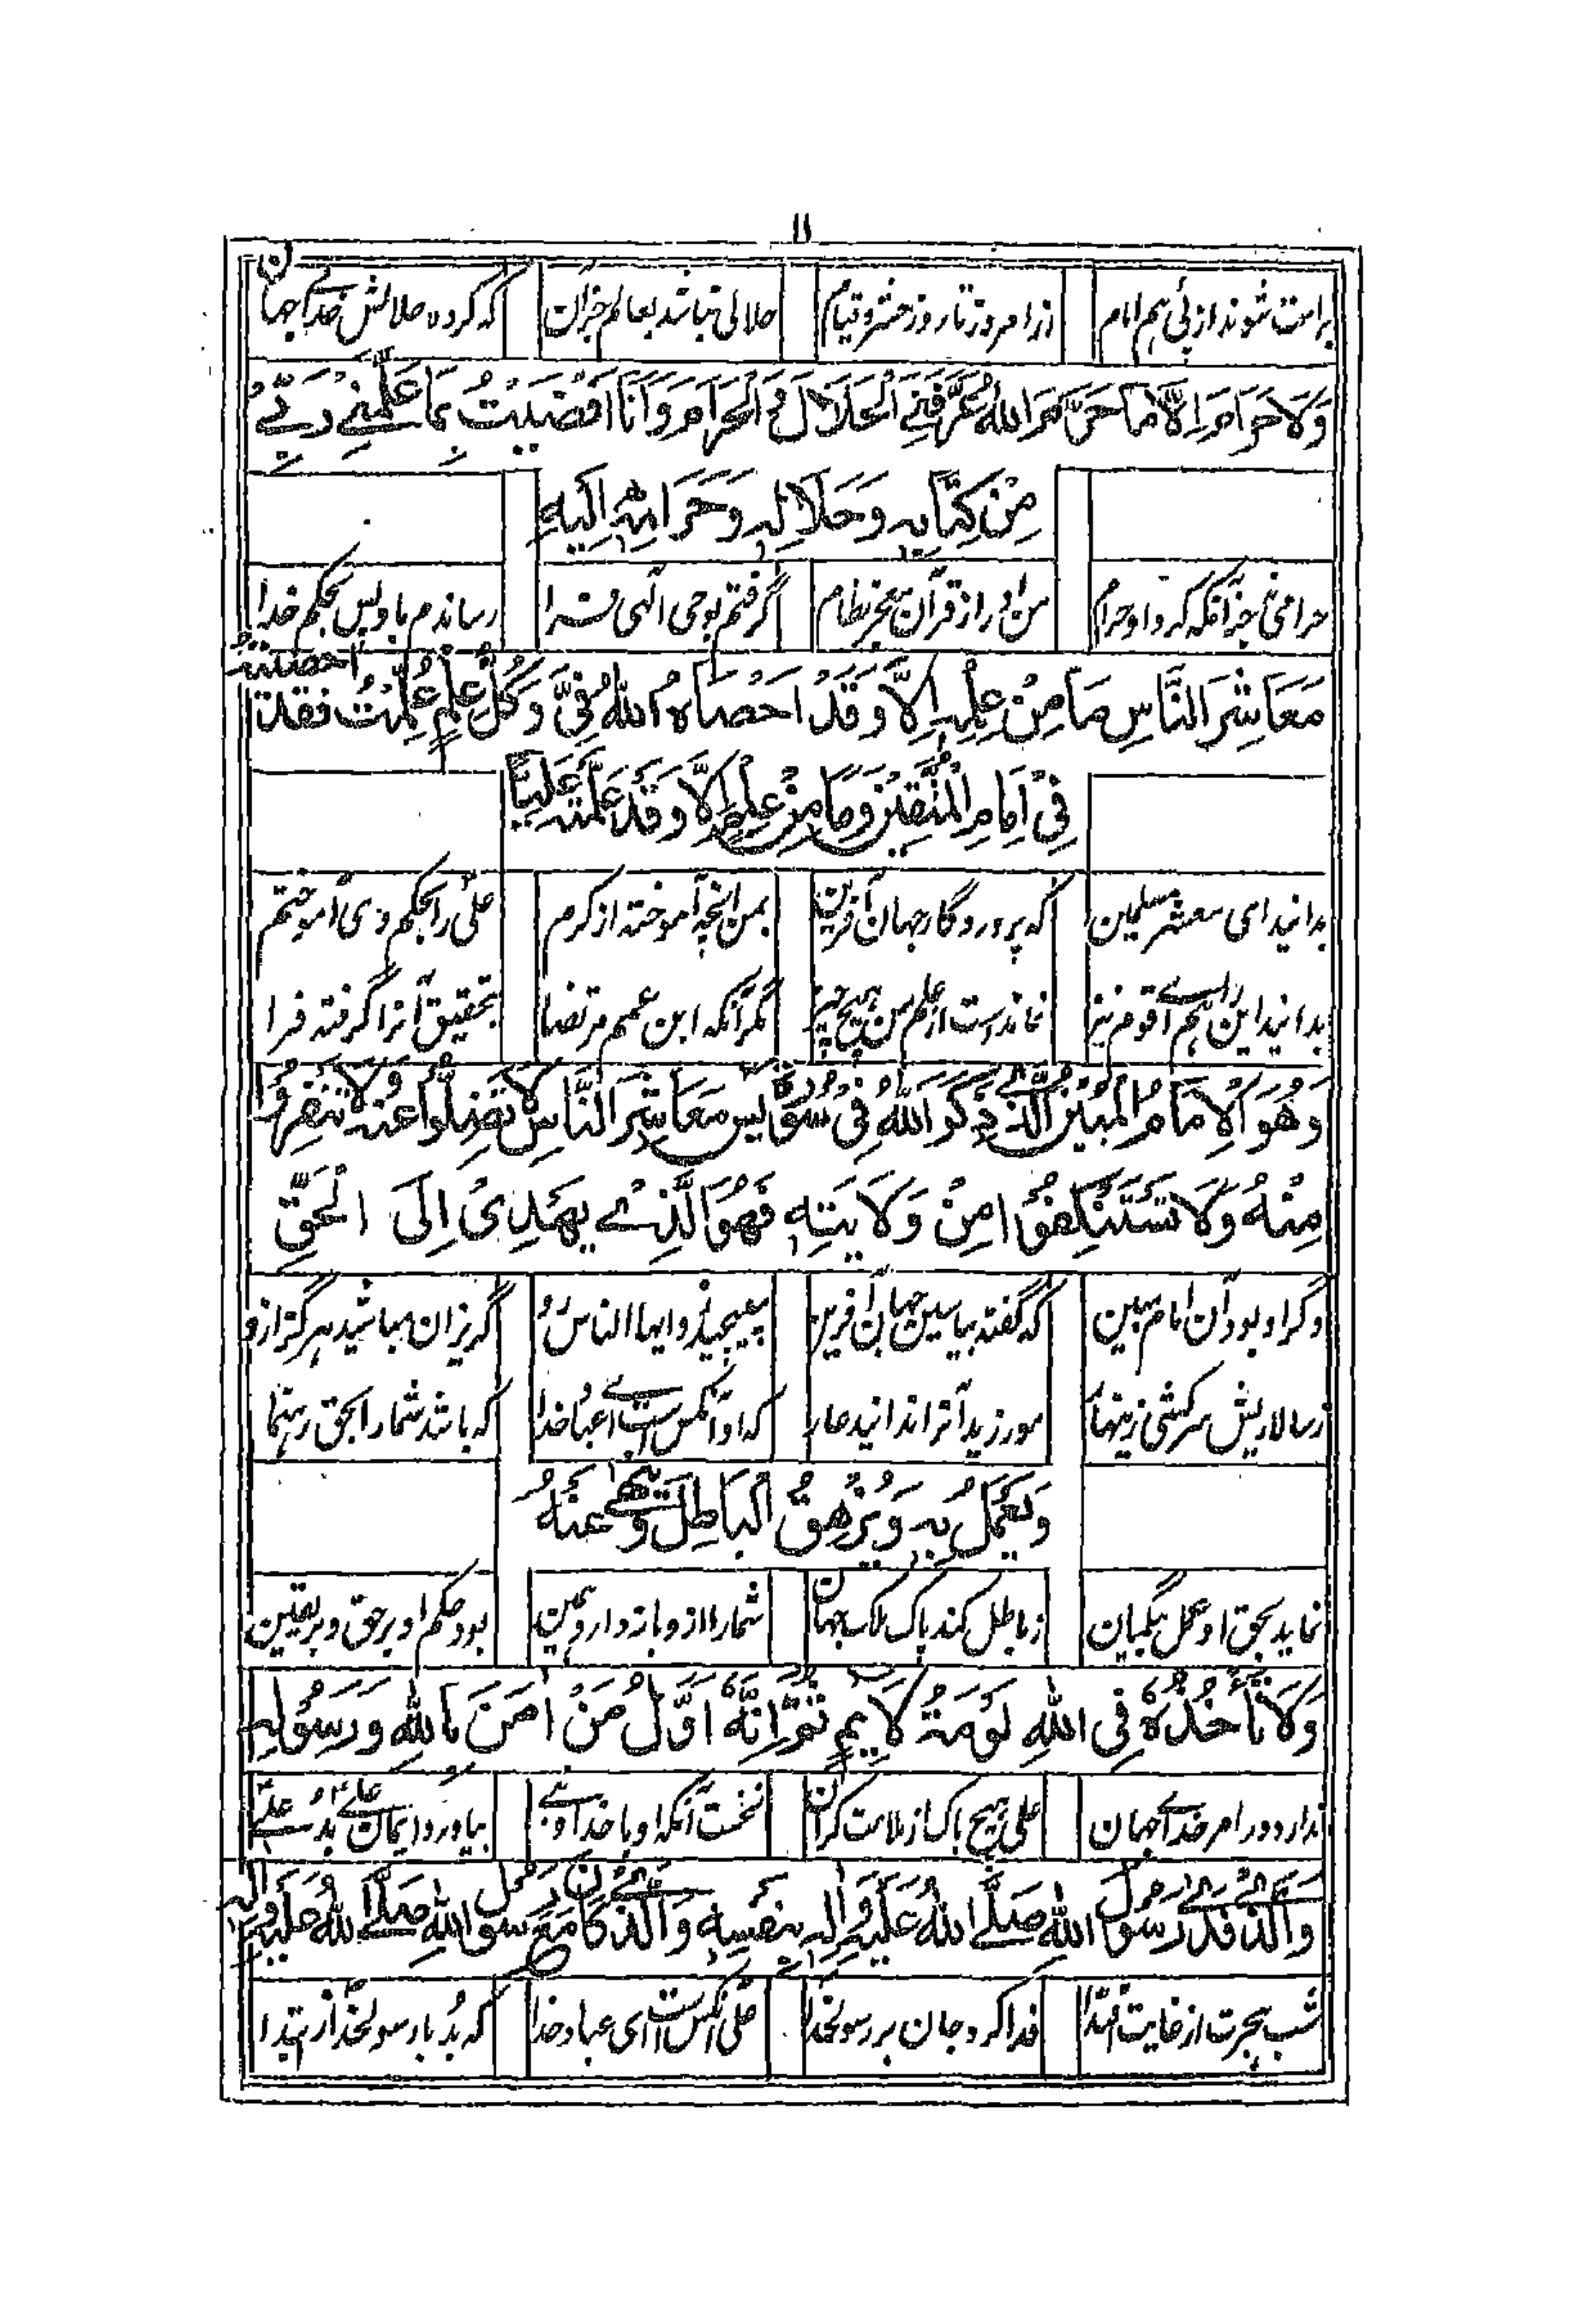 ۱۱
بر امت شوند از پی هم امام از امروز تا روز حشر و قیام حلالی نباشد بعالم جز آن که کرده حلالش خدای جهان
وَلَا حَرَامَ اِلَّا مَا حَرَّمَ اللهُ عَرَّفَنِي الْحَلَالَ وَ الْحَرَامَ وَ اَنَا اَفْضَيْتُ بِمَا عَلَّمَنِي رَبِّي
مِنْ كِتَابِهِ وَ حَلَالِهِ وَ حَرَامِهِ اِلَيْهِ
حرامی نه جز آنکه کرد او حرام من او را ز قرآن معجز نظام گرفتم بوحی الهی فرا رساندم باو پس بحکم خدا
مَعَاشِرَ النَّاسِ مَا مِنْ عِلْمٍ اِلَّا وَ قَدْ اَحْصَاهُ اللهُ فِيَّ وَ كُلُّ عِلْمٍ عُلِّمْتُ فَقَدْ اَحْصَيْتُهُ
فِيْ اِمَامِ الْمُتَّقِيْنَ وَ مَا مِنْ عِلْمٍ اِلَّا وَ قَدْ عَلَّمْتُهُ عَلِيًّا
بدانید ای معشر مسلمین که پروردگار جهان آفرین بمن انچه آموخته از کرم علی را بحکم وی آموختم
بدانید این را هم ای قوم نیز نماندست از علم من هیچ چیز مگر آنکه ابن عمم مرتضا بتحقیق آنرا گرفته فرا
وَ هُوَ الْاِمَامُ الْمُبِيْنُ الَّذِي ذَكَرَ اللهُ فِيْ سُوْرَةِ يٰسٓ مَعَاشِرَ النَّاسِ لَا تَضِلُّوا عَنْهُ وَلَا تَنْفِرُوْا
مِنْهُ وَلَا تَسْتَنْكِفُوْا مِنْ وَلَايَتِهِ فَهُوَ الَّذِيْ يَهْدِيْ اِلَى الْحَقِّ
وگر او بود آن امام مبین که گفته بیاسین جهان آفرین مپیچید زو ایها الناس رو گریزان مباشید هرگز ازو
ز سالاریش سرکشی زینهار مورزید آنرا ندانید عار که او آنکس است ای عباد خدا که باشد شما را بحق رهنما
وَ يَعْمَلُ بِهِ وَ يُزْهِقُ الْبَاطِلَ وَ يَنْهٰى عَنْهُ
نماید بحق او عمل بیگمان ز باطل کند پاک ملک جهان شما را ازو باز دارد همین بود حکم او بر حق و بر یقین
وَلَا تَأْخُذُهُ فِي اللهِ لَوْمَةُ لَايِمٍ ثُمَّ اِنَّهُ اَوَّلُ مَنْ اٰمَنَ بِاللهِ وَ رَسُوْلِهِ
ندارد در امر خدای جهان علی هیچ باک از ملامت گران نخست آنکه او با خدا و نبی بیاورد ایمان علی بد علی
وَ الَّذِي فَدٰى رَسُوْلَ اللهِ صَلَّى اللهُ عَلَيْهِ وَ اٰلِهِ بِنَفْسِهِ وَ الَّذِي كَانَ مَعَ رَسُوْلِ اللهِ صَلَّى اللهُ عَلَيْهِ وَ اٰلِهِ
شب هجرت از غایت اهتدا فدا کرد جان بر رسولخدا علی آنکس است ای عباد خدا که بُد با رسولخدا ز ابتدا